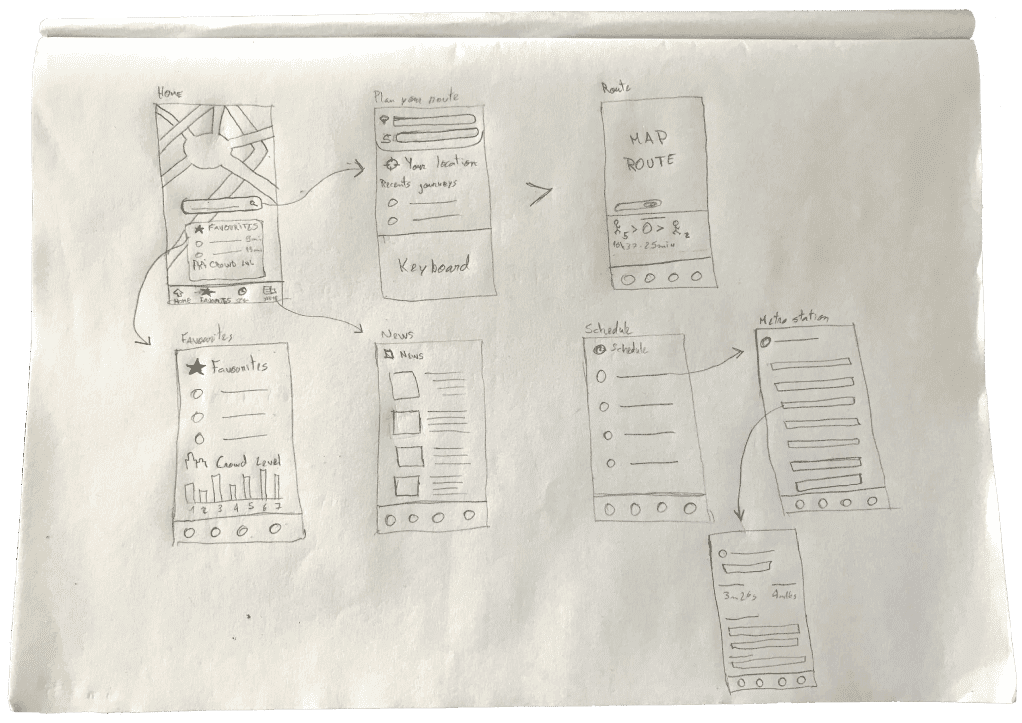 Home
FAVOURITES
Crowd Lvl
HOME FAVOURITES
Plan your route
Your location
Recents journeys
Keyboard
Route
MAP
ROUTE
5 > O > 2
Favourites
Favourites
Crowd Level
1 2 3 4 5 6 7
News
News
Schedule
Schedule
Metro station
3m26s 4m16s